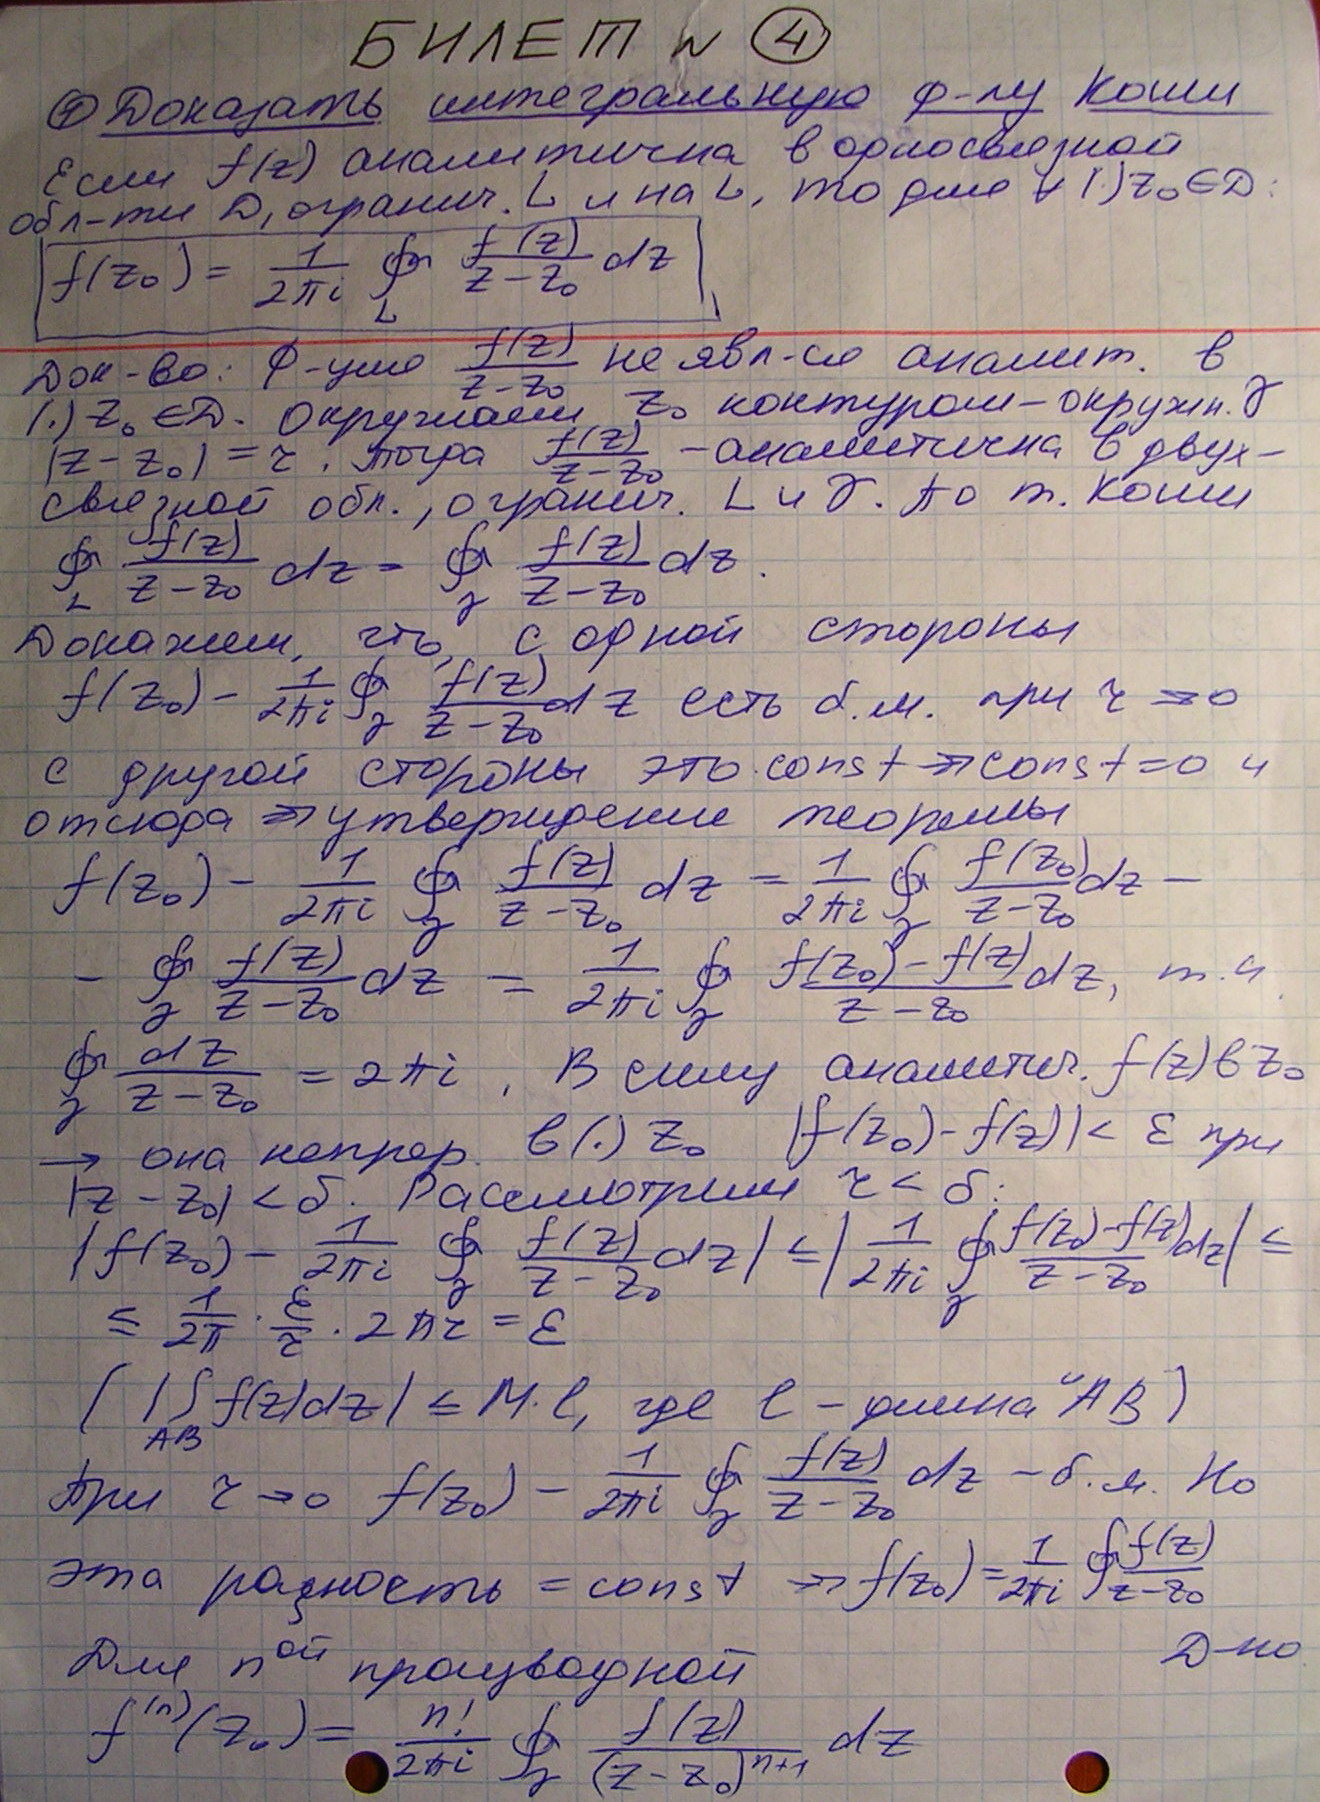 БИЛЕТ N ④
① Доказать интегральную ф-лу Коши
Если f(z) аналитична в односвязной
обл-ти D, огранич. L и на L, то для ∀ (.) z₀ ∈ D:
f(z₀) = 1/(2πi) ∮_L f(z)/(z-z₀) dz
Док-во: Ф-ция f(z)/(z-z₀) не явл-ся аналит. в
(.) z₀ ∈ D. Окружаем z₀ контуром - окружн. γ
|z-z₀| = r. Тогда f(z)/(z-z₀) - аналитична в двух-
связной обл., огранич. L и γ. По т. Коши
∮_L f(z)/(z-z₀) dz = ∮_γ f(z)/(z-z₀) dz.
Докажем, что, с одной стороны
f(z₀) - 1/(2πi) ∮_γ f(z)/(z-z₀) dz есть б.м. при r → 0
с другой стороны это const ⇒ const = 0 и
отсюда ⇒ утверждение теоремы
f(z₀) - 1/(2πi) ∮_γ f(z)/(z-z₀) dz = 1/(2πi) ∮_γ f(z₀)/(z-z₀) dz -
- ∮_γ f(z)/(z-z₀) dz = 1/(2πi) ∮_γ (f(z₀)-f(z))/(z-z₀) dz, т.к.
∮_γ dz/(z-z₀) = 2πi. В силу аналитич. f(z) в z₀
→ она непрер. в (.) z₀ |f(z₀)-f(z)| < ε при
|z-z₀| < δ. Рассмотрим r < δ:
|f(z₀) - 1/(2πi) ∮_γ f(z)/(z-z₀) dz| ≤ |1/(2πi) ∮_γ (f(z₀)-f(z))/(z-z₀) dz| ≤
≤ 1/(2π) · ε/r · 2πr = ε
(|∫_AB f(z)dz| ≤ M·l, где l - длина ᴗAB)
При r → 0 f(z₀) - 1/(2πi) ∮_γ f(z)/(z-z₀) dz - б.м. Но
эта разность = const ⇒ f(z₀) = 1/(2πi) ∮ f(z)/(z-z₀)
Д-но
Для nой производной
f⁽ⁿ⁾(z₀) = n!/(2πi) ∮_γ f(z)/(z-z₀)ⁿ⁺¹ dz